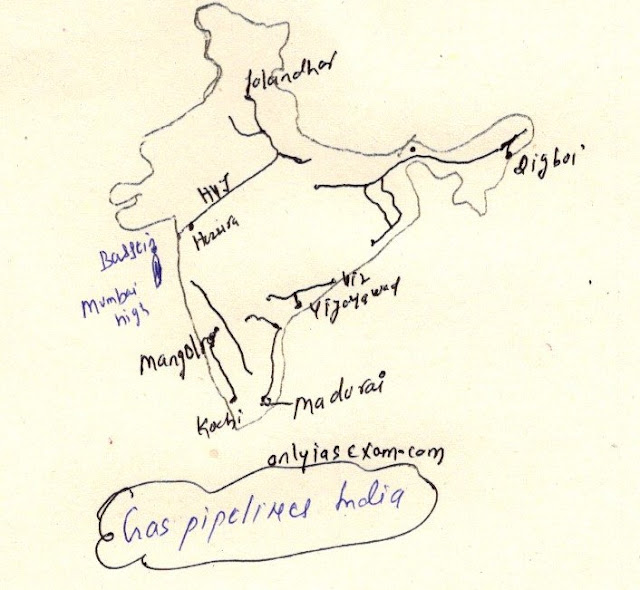 Jalandhar
Digboi
HVJ
Hazira
Bassein
Mumbai
high
Viz
Vijayawad
Manglr
Madurai
Kochi
onlyiasexam.com
Gas pipelines India